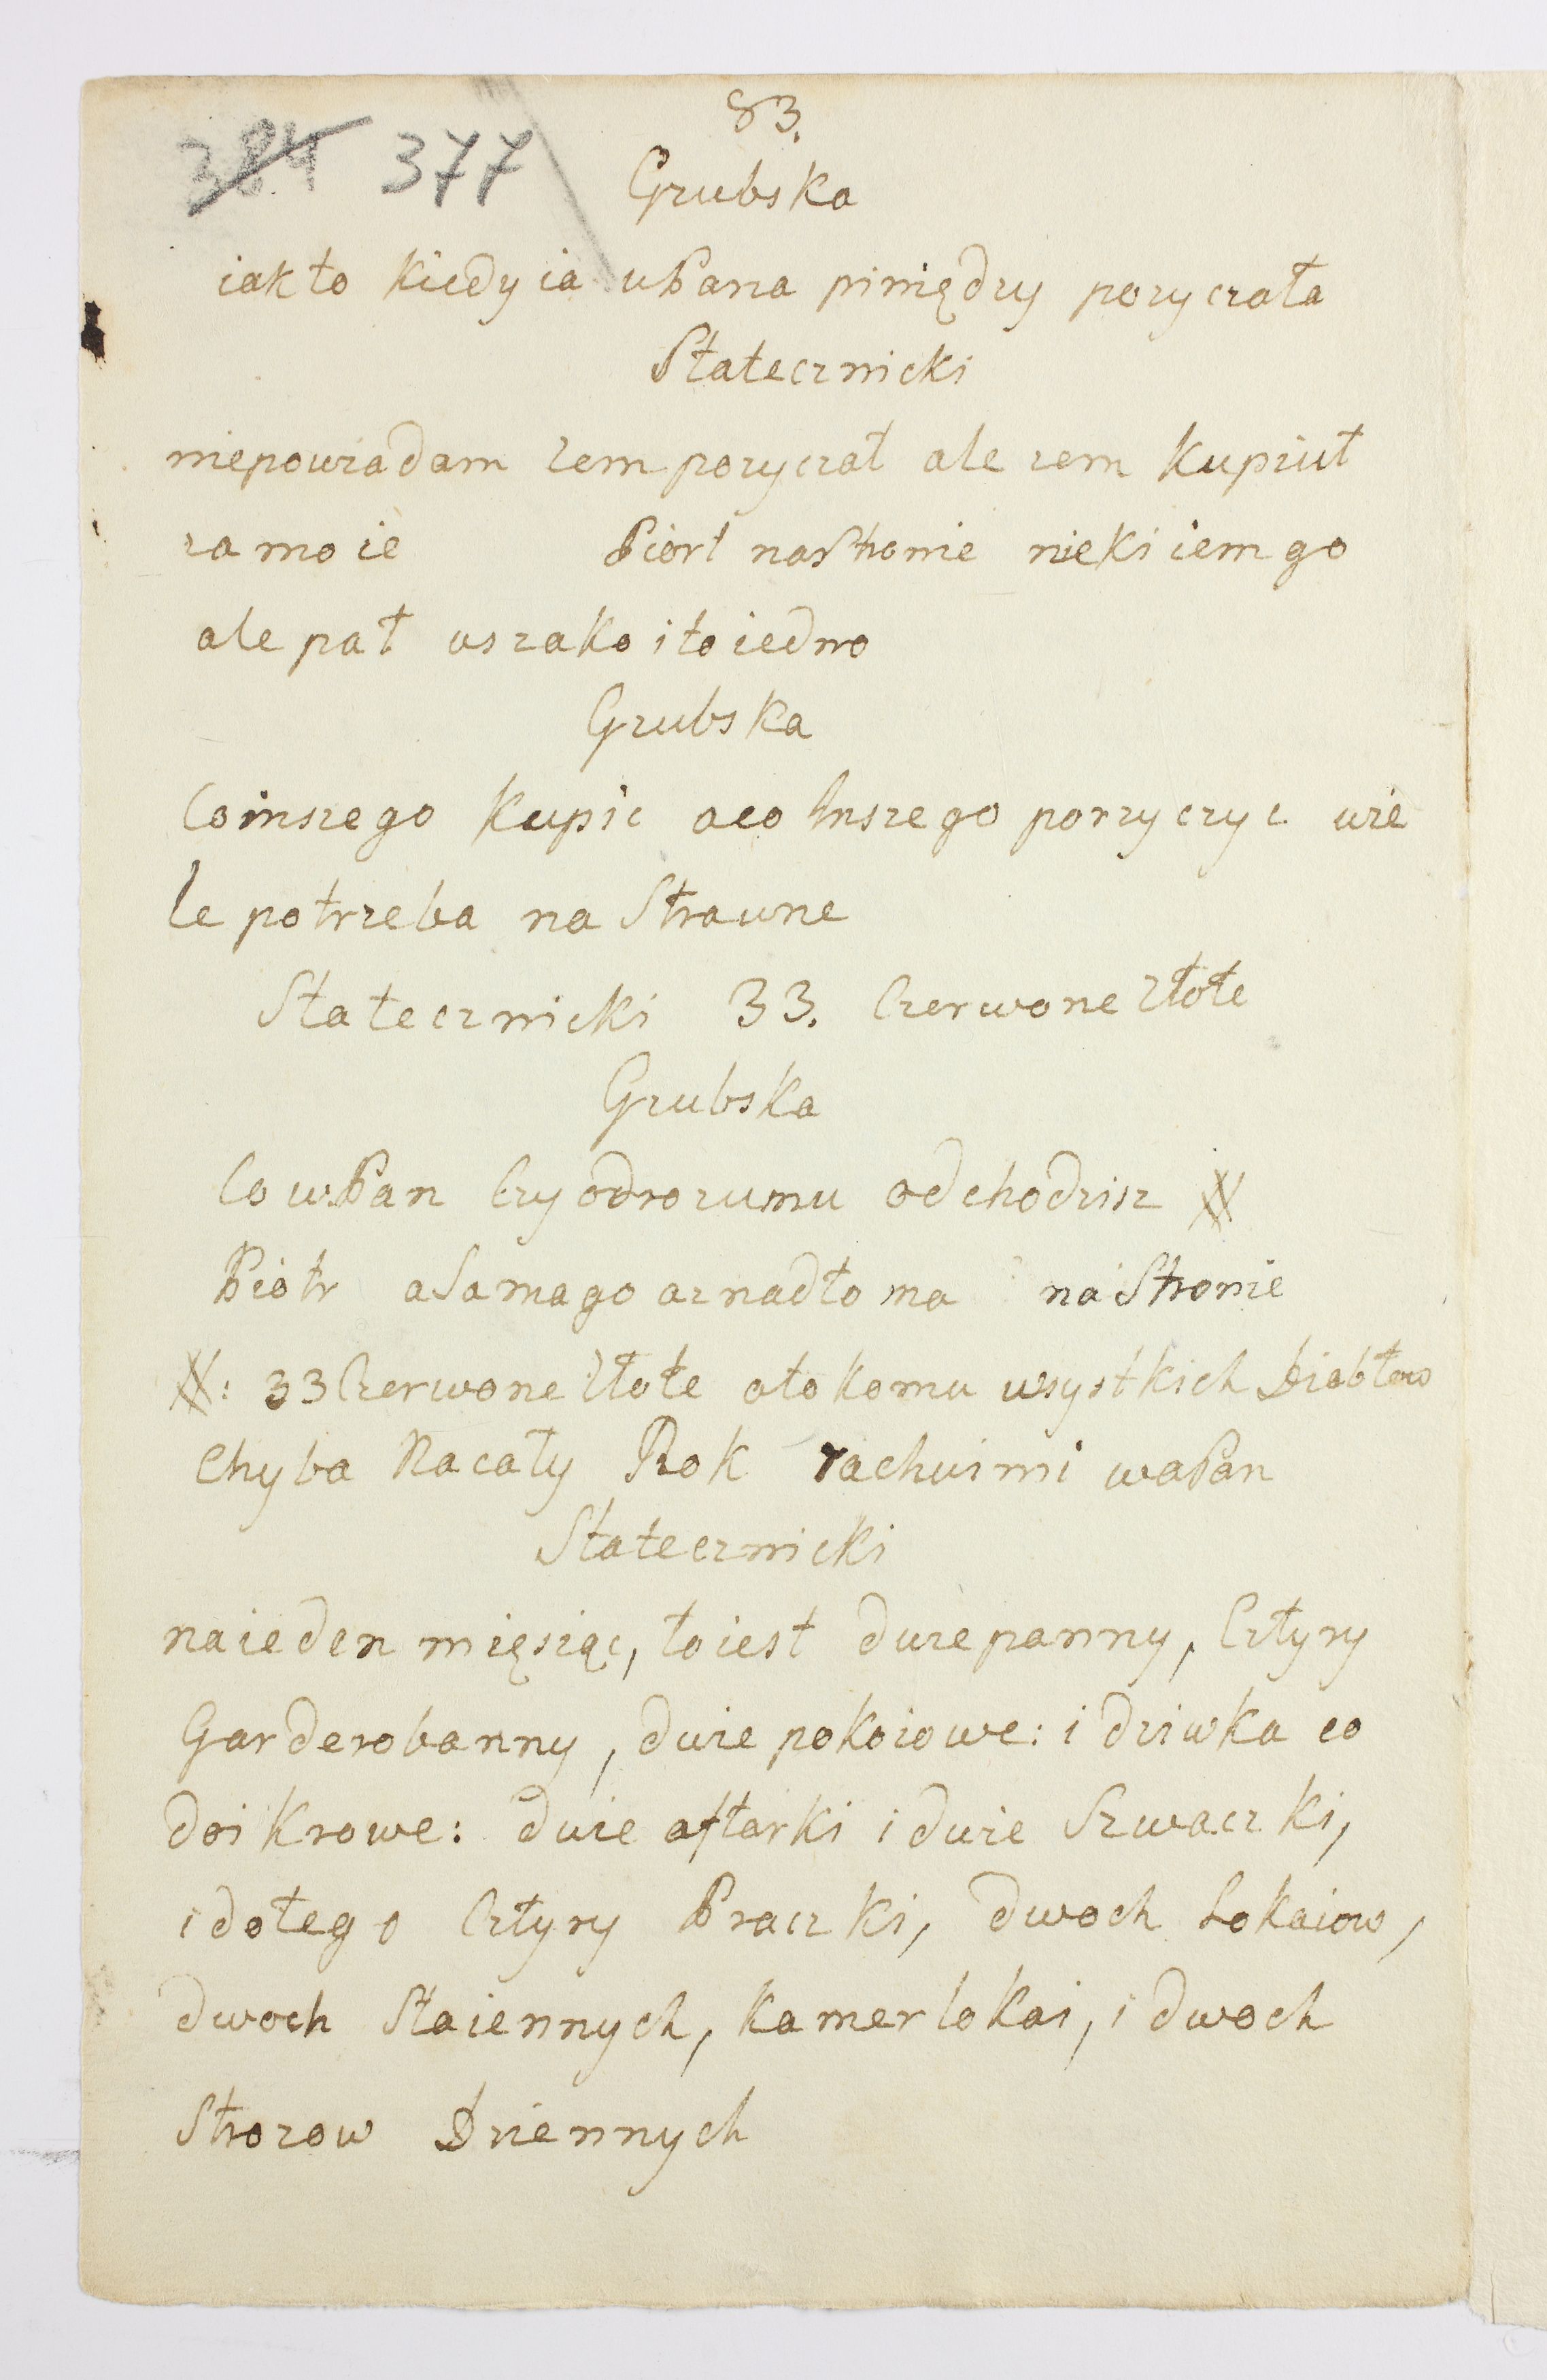 83.
384 377
Grubska
iak to kiedy ia u Pana piniędzy pozyczała
Statecznicki
niepowiadam zem pozyczał ale zem kupiuł
za moie Piotr nastronie nieki iem go
ale pał wszako i to iedno
Grubska
Co inszego kupic aco Inszego porzyczyc wie
le potrzeba na Strawne
Statecznicki 33. Czerwone Złote
Grubska
Co wPan Czy odrozumu odchodzisz #
Piotr aSamago aznadto ma na Stronie
#: 33 Czerwone Złote oto komu wsystkich Diabłow
Chyba Nacały Rok rachuimi waPan
Statecznicki
na ieden mięsiąc, to iest dwie panny, Cztyry
Garderobanny, dwie pokoiowe: i dziwka co
doi Krowe: dwie aftarki i dwie Szwaczki,
i dotego Cztyry Praczki, dwoch Lokaiow,
dwoch Staiennych, kamerlokai, i dwoch
Strozow Dziennych